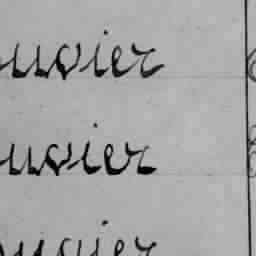 uvier
uvier
uvier